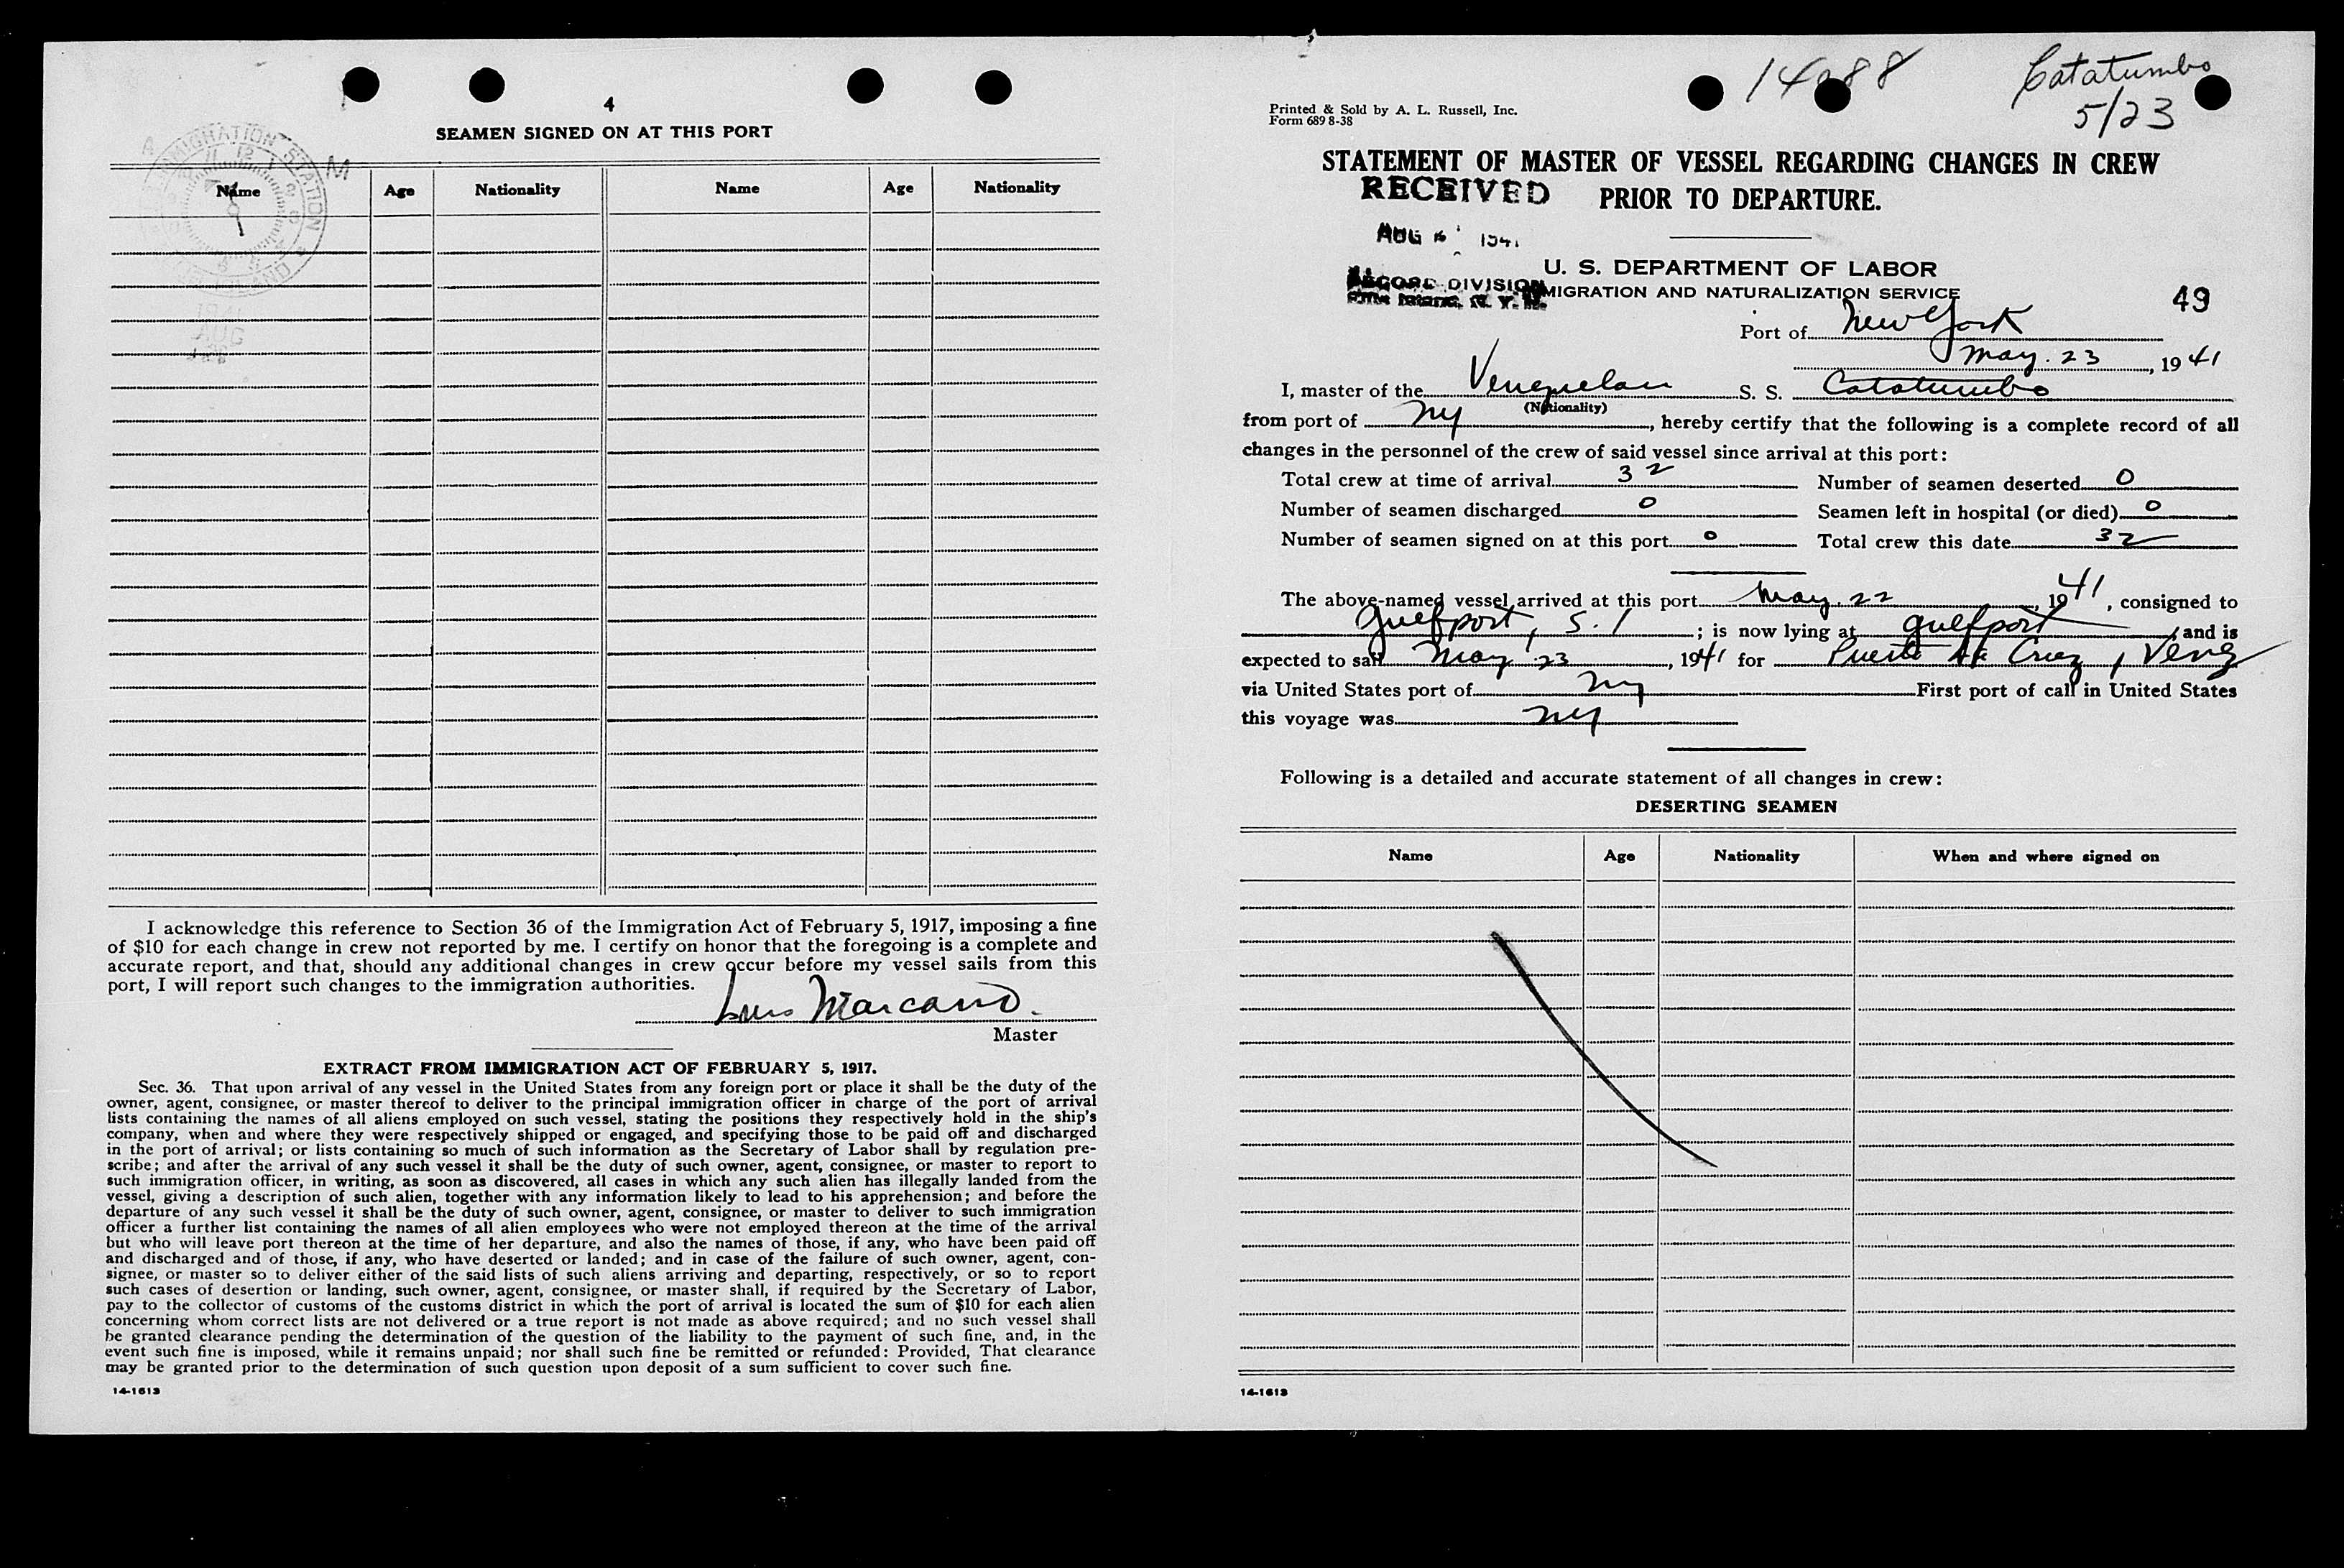 4
SEAMEN SIGNED ON AT THIS PORT
IMMIGRATION STATION
Name Age Nationality Name Age Nationality
I acknowledge this reference to Section 36 of the Immigration Act of February 5, 1917, imposing a fine
of $10 for each change in crew not reported by me. I certify on honor that the foregoing is a complete and
accurate report, and that, should any additional changes in crew occur before my vessel sails from this
port, I will report such changes to the immigration authorities.
Luis Marcano.
Master
EXTRACT FROM IMMIGRATION ACT OF FEBRUARY 5, 1917.
Sec. 36. That upon arrival of any vessel in the United States from any foreign port or place it shall be the duty of the
owner, agent, consignee, or master thereof to deliver to the principal immigration officer in charge of the port of arrival
lists containing the names of all aliens employed on such vessel, stating the positions they respectively hold in the ship's
company, when and where they were respectively shipped or engaged, and specifying those to be paid off and discharged
in the port of arrival; or lists containing so much of such information as the Secretary of Labor shall by regulation pre-
scribe; and after the arrival of any such vessel it shall be the duty of such owner, agent, consignee, or master to report to
such immigration officer, in writing, as soon as discovered, all cases in which any such alien has illegally landed from the
vessel, giving a description of such alien, together with any information likely to lead to his apprehension; and before the
departure of any such vessel it shall be the duty of such owner, agent, consignee, or master to deliver to such immigration
officer a further list containing the names of all alien employees who were not employed thereon at the time of the arrival
but who will leave port thereon at the time of her departure, and also the names of those, if any, who have been paid off
and discharged and of those, if any, who have deserted or landed; and in case of the failure of such owner, agent, con-
signee, or master so to deliver either of the said lists of such aliens arriving and departing, respectively, or so to report
such cases of desertion or landing, such owner, agent, consignee, or master shall, if required by the Secretary of Labor,
pay to the collector of customs of the customs district in which the port of arrival is located the sum of $10 for each alien
concerning whom correct lists are not delivered or a true report is not made as above required; and no such vessel shall
be granted clearance pending the determination of the question of the liability to the payment of such fine, and, in the
event such fine is imposed, while it remains unpaid; nor shall such fine be remitted or refunded: Provided, That clearance
may be granted prior to the determination of such question upon deposit of a sum sufficient to cover such fine.
14-1613
Catatumbo
5/23
Printed & Sold by A. L. Russell, Inc.
Form 689 8-38
STATEMENT OF MASTER OF VESSEL REGARDING CHANGES IN CREW
RECEIVED PRIOR TO DEPARTURE.
AUG 1941
U. S. DEPARTMENT OF LABOR
RECORD DIVISION IMMIGRATION AND NATURALIZATION SERVICE
49
Port of New York
May. 23, 1941
I, master of the Venezuelan S. S. Catatumbo
(Nationality)
from port of NY, hereby certify that the following is a complete record of all
changes in the personnel of the crew of said vessel since arrival at this port:
Total crew at time of arrival 32 Number of seamen deserted 0
Number of seamen discharged 0 Seamen left in hospital (or died) 0
Number of seamen signed on at this port 0 Total crew this date 32
The above-named vessel arrived at this port May. 22, 1941, consigned to
Gulfport, S. I; is now lying at Gulfport, and is
expected to sail May 23, 1941 for Puerto La Cruz, Venez
via United States port of NY First port of call in United States
this voyage was NY
Following is a detailed and accurate statement of all changes in crew:
DESERTING SEAMEN
Name Age Nationality When and where signed on
14-1613